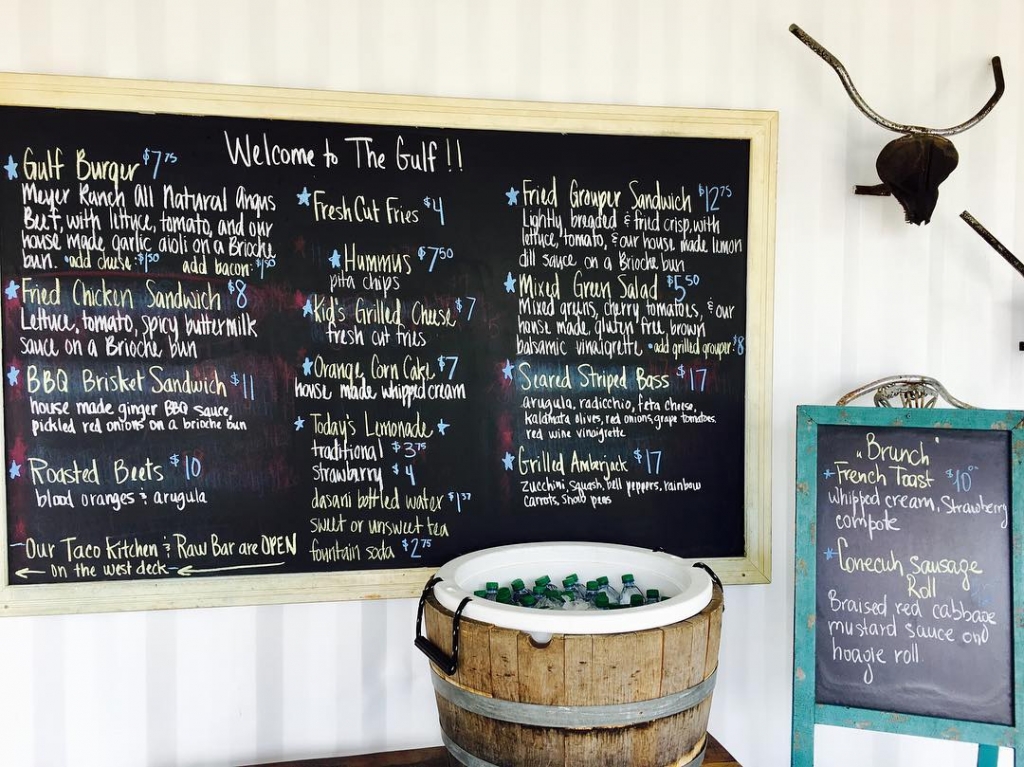 Welcome to The Gulf!!
Gulf Burger $7.75
Meyer Ranch All Natural Angus
Beef, with lettuce, tomato, and our
house made garlic aioli on a Brioche
bun. •add cheese: $1.50 add bacon: $1.50
Fried Chicken Sandwich $8
Lettuce, tomato, spicy buttermilk
sauce on a Brioche bun
BBQ Brisket Sandwich $11
house made ginger BBQ sauce,
pickled red onions on a brioche bun
Roasted Beets $10
blood oranges & arugula
-Our Taco Kitchen & Raw Bar are OPEN
on the west deck-
Fresh Cut Fries $4
Hummus $7.50
pita chips
Kid's Grilled Cheese $7
fresh cut fries
Orange Corn Cake $7
house made whipped cream
Today's Lemonade
traditional $3.75
strawberry $4
dasani bottled water
sweet or unsweet tea
fountain soda $2.75
Fried Grouper Sandwich $12.75
Lightly breaded & fried crisp, with
lettuce, tomato, & our house made lemon
dill sauce on a Brioche bun
Mixed Green Salad $5.50
Mixed greens, cherry tomatoes, & our
house made, gluten free, brown
balsamic vinaigrette •add grilled grouper: $8
Seared Striped Bass $17
arugula, radicchio, feta cheese,
kalamata olives, red onions, grape tomatoes,
red wine vinaigrette
Grilled Amberjack $17
zucchini, squash, bell peppers, rainbow
carrots, snow peas
"Brunch"
French Toast $10
whipped cream, Strawberry
compote
Conecuh Sausage
Roll
Braised red cabbage
mustard sauce and
hoagie roll